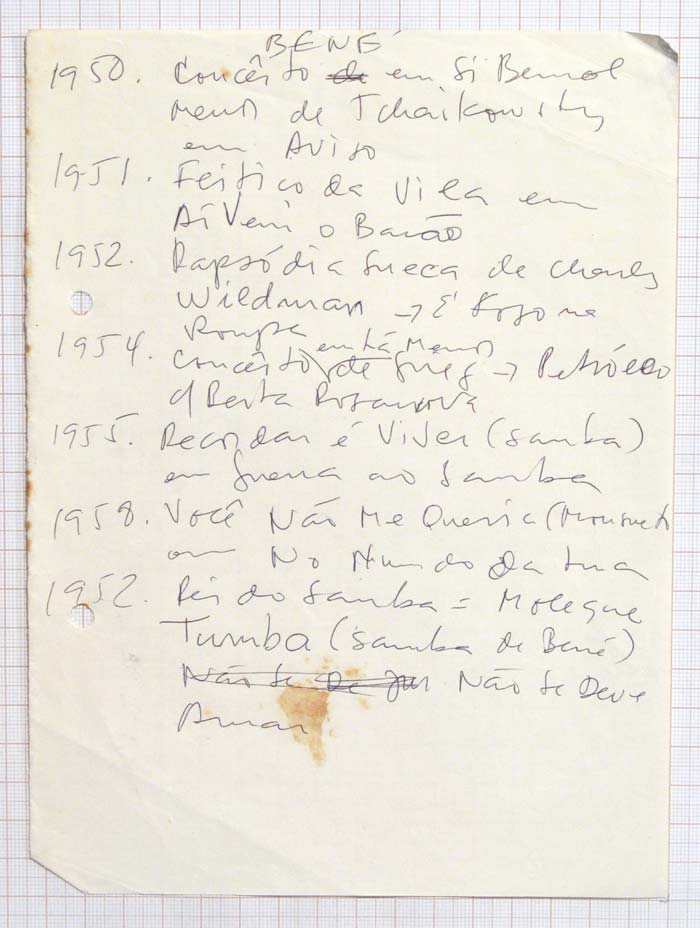 BENÉ
1950. Concêrto de em Si Bemol
menor de Tchaikowsky
em Aviso
1951. Feitiço da Vila em
Aí Vem o Barão
1952. Rapsódia Sueca de Charles
Wildman → É Fogo na
Roupa
1954. Concêrto em Lá Menor de Grieg → Petróleo
c/ Berta Rosanova
1955. Recordar é Viver (samba)
em Guerra ao Samba
1958. Você Não Me Queria (Monsueto
em No Mundo da Lua
1952. Rei do Samba = Moleque
Tumba (samba de Bené)
Não se De Não se Deve
Amar